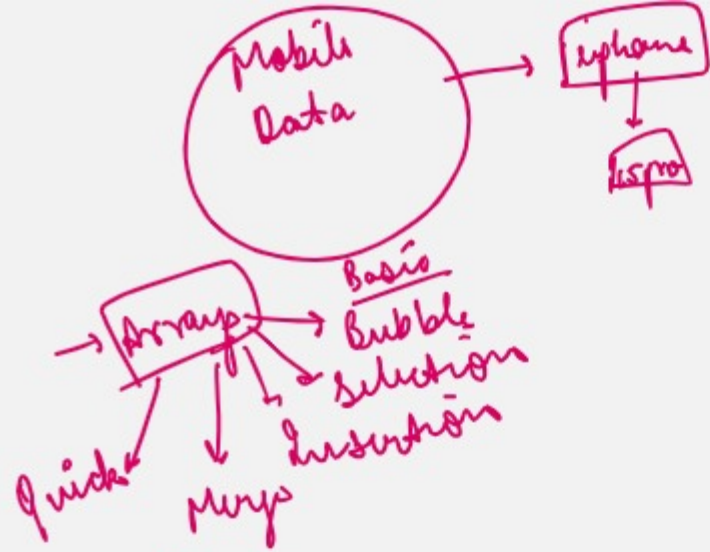 Mobile
Data
iphone
15pro
Basic
Arrays
Bubble
Selection
Insertion
Quick
Merge